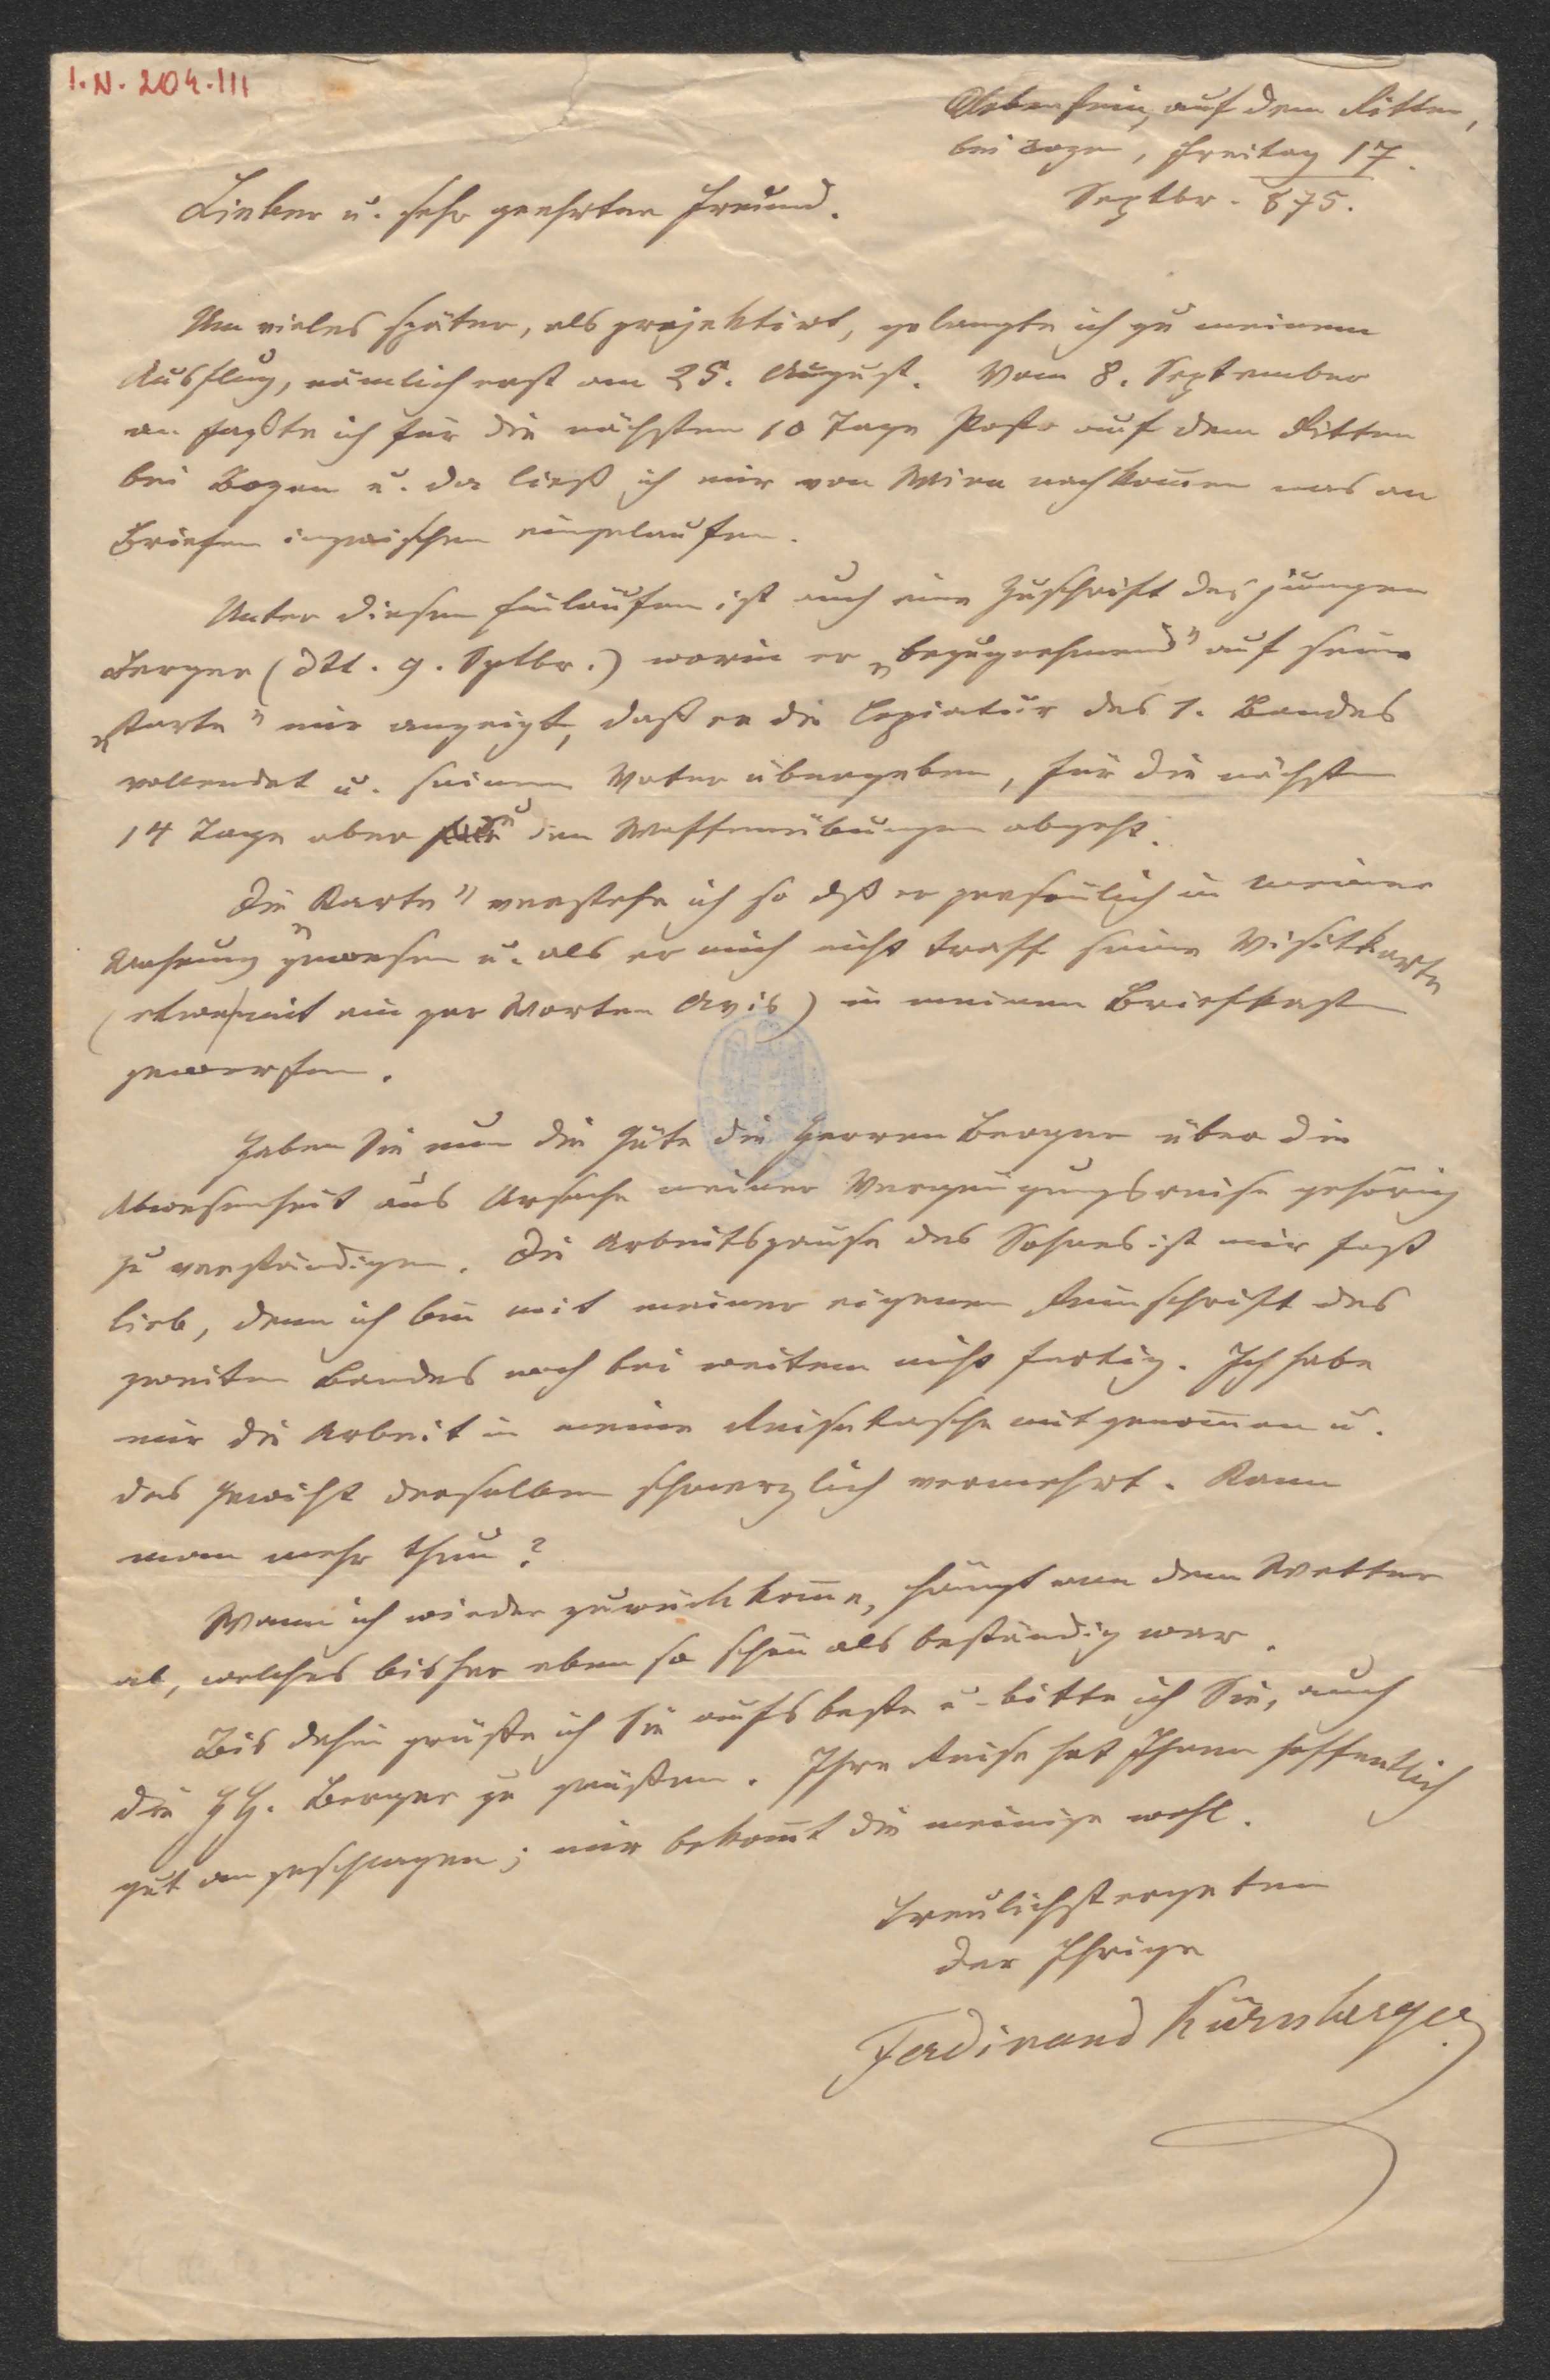 I.N. 204.III
auf dem Ritten,
bei Bozen, Freitag 17.
Septbr. 875.
Lieber u. sehr geehrter Freund.
Um vieles später, als projektirt, gelangte ich zu meinem
Ausflug, nämlich erst am 25. August. Vom 8. September
an faßte ich für die nächsten 10 Tage Posto auf dem Ritten
bei Bozen u. da ließ ich mir von Wien nachkom̄en was an
Briefen inzwischen eingelaufen.
Unter diesen Einläufen ist auch eine Zuschrift des jungen
Berger (dtt. 9. Sptbr.) worin er „bezugnehmend" auf seine
„Karte" mir anzeigt, daß er die Copiatur des 1. Bandes
vollendet u. seinem Vater übergeben, für die nächsten
14 Tage aber zu den Waffenübungen abgeht.
Die „Karte" verstehe ich so dß er persönlich in meiner
Wohnung gewesen u. als er mich nicht traff seine Visitkarte
(etwa mit ein par Worten Avis) in meinen Briefkasten
geworfen.
Haben Sie nun die Güte die Herren Berger über die
Abwesenheit aus Ursache meiner Vergnügungsreise gehörig
zu verständigen. Die Arbeitspause des Sohnes ist mir fast
lieb, denn ich bin mit meiner eigenen Reinschrift des
zweiten Bandes noch bei weitem nicht fertig. Ich habe
mir die Arbeit in meine Reisetasche mitgenom̄en u.
das Gewicht derselben schmerzlich vermehrt. Kann
man mehr thun?
Wann ich wieder zurückkom̄e, hängt von dem Wetter
ab, welches bisher eben so schön als beständig war.
Bis dahin grüße ich Sie aufs beste u. bitte ich Sie, auch
die HH. Berger zu grüßen. Ihre Reise hat Ihnen hoffentlich
gut angeschlagen; mir bekom̄t die meinige wohl.
Treulichst
der Ihrige
Ferdinand Kürnberger